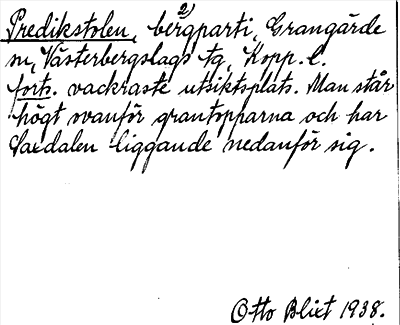 Predikstolen, bergparti, Grangärde
2)
sn, Västerbergslags tg, Kopp. l.
forts. vackraste utsiktsplats. Man står
högt ovanför grantopparna och har
dalen liggande nedanför sig.
Otto Blixt 1938.